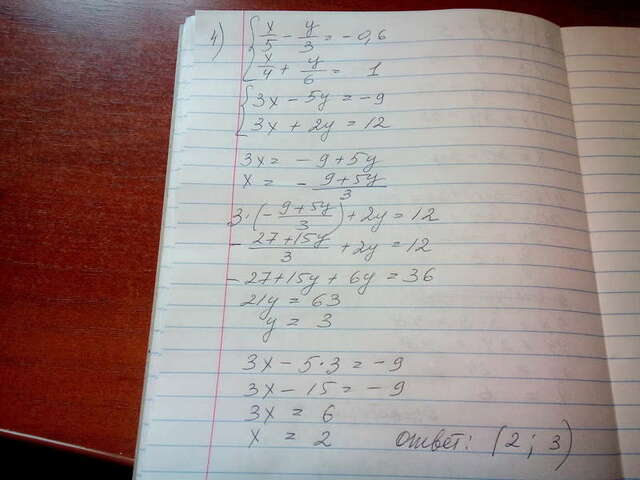 4) { x/5 - y/3 = -0,6
x/4 + y/6 = 1
{ 3x - 5y = -9
3x + 2y = 12
3x = -9 + 5y
x = - 9+5y/3
3·(- 9+5y/3) + 2y = 12
- 27+15y/3 + 2y = 12
- 27+15y + 6y = 36
21y = 63
y = 3
3x - 5·3 = -9
3x - 15 = -9
3x = 6
x = 2 ответ: (2; 3)